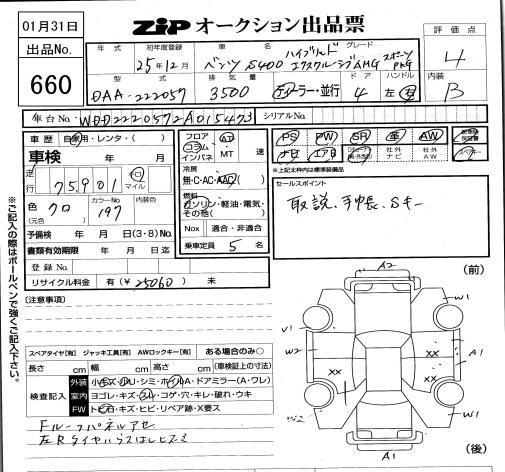 01月31日
ZiPオークション出品票
出品No.
660
年式
初年度登録
25年12月
車名
ベンツ S400 ハイブリッド
グレード
エクスクルーシブ AMG スポーツPKG
評価点
4
型式
DAA-222057
排気量
3500
ディーラー・並行
ドア
4
ハンドル
左 右
内装
B
車台No. WDD2220572A015473
シリアルNo.
車歴 自家用・レンタ・( )
車検 年 月
走行 75,901 km マイル
色 クロ
(元色)
カラーNo.
197
内装色
予備検 年 月 日(3・8)もの
書類有効期限 年 月 日迄
登録No.
リサイクル料金 有(¥ 25060) 未
フロア
コラム
インパネ
AT
MT 速
冷房
無・C・AC・AAC( )
燃料
ガソリン・軽油・電気・
その他( )
Nox 適合・非適合
乗車定員 5 名
PS PW SR 革 AW
ナビ エアB 社外ナビ 社外AW
※上記太枠内は標準装備品
セールスポイント
取説、手帳、Sキー
(注意事項)
スペアタイヤ[有] ジャッキ工具[有] AWロックキー[有] ある場合のみ○
長さ cm 幅 cm 高さ cm (車検証上の寸法)
検査記入
外装 小キズ・凹・シミ・ホイルA・ドアミラー(A・ワレ)
室内 ヨゴレ・キズ・スレ・コゲ・穴・キレ・破れ・ウキ
FW トビ石・キズ・ヒビ・リペア跡・X要ス
Fルーフパネルアセ
※ご記入の際はボールペンで強くご記入下さい。
(前)
A2
W1
V1
W2
XX
XX
A1
W2
W1
A1
(後)